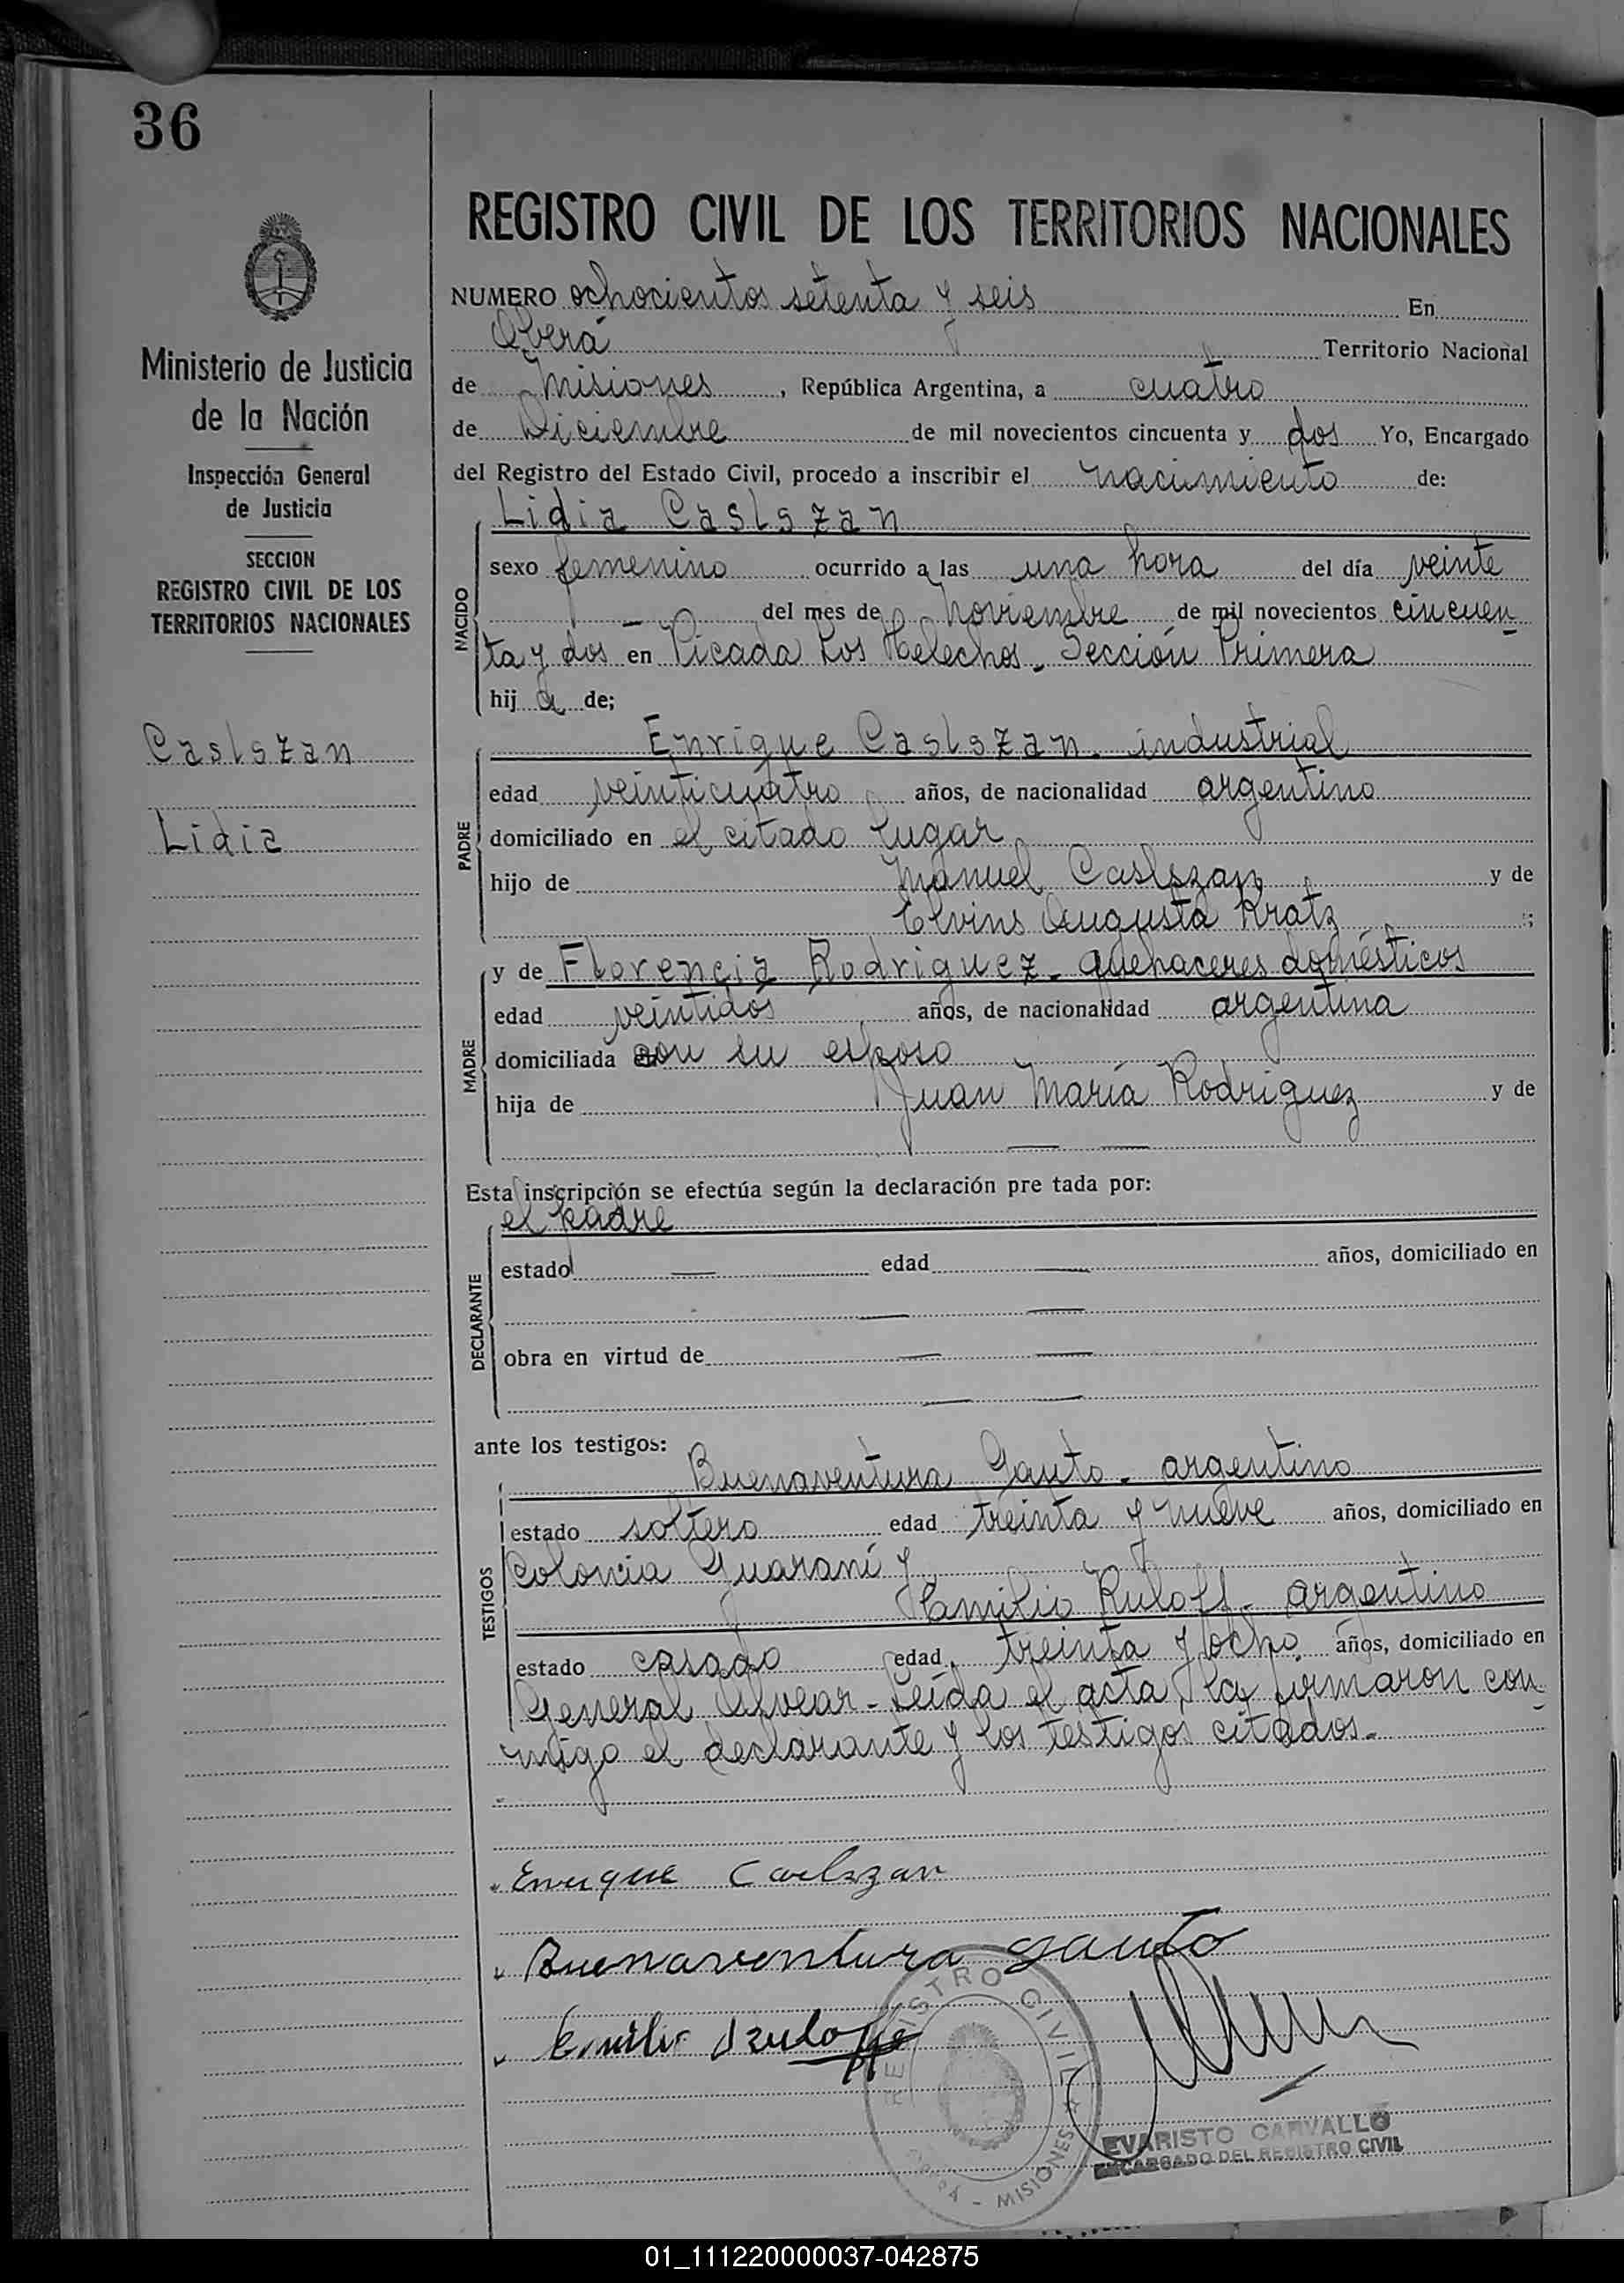 36
REGISTRO CIVIL DE LOS TERRITORIOS NACIONALES
Ministerio de Justicia
de la Nación
Inspección General
de Justicia
SECCION
REGISTRO CIVIL DE LOS
TERRITORIOS NACIONALES
Caslszan
Lidia
NUMERO ochocientos setenta y seis En
Oberá Territorio Nacional
de Misiones, República Argentina, a cuatro
de Diciembre de mil novecientos cincuenta y dos Yo, Encargado
del Registro del Estado Civil, procedo a inscribir el nacimiento de:
Lidia Caslszan
NACIDO
sexo femenino ocurrido a las una hora del día veinte
— del mes de Noviembre de mil novecientos cincuen
ta y dos en Picada Los Helechos - Sección Primera
hij a de;
Enrique Caslszan - industrial
PADRE
edad veinticuatro años, de nacionalidad argentino
domiciliado en el citado lugar
hijo de Manuel Caslszan y de
Elvins Augusta Kratz ;
y de Florencia Rodriguez - quehaceres domésticos
MADRE
edad veintidós años, de nacionalidad argentina
domiciliada con su esposo
hija de Juan María Rodriguez y de
— —
Esta inscripción se efectúa según la declaración pre tada por:
el padre
DECLARANTE
estado — edad — años, domiciliado en
— —
obra en virtud de — —
— —
ante los testigos:
Buenaventura Gauto - argentino
TESTIGOS
estado soltero edad treinta y nueve años, domiciliado en
Colonia Guaraní y
Emilio Ruloff - argentino
estado casado edad treinta y ocho años, domiciliado en
General Alvear - Leída el acta, la firmaron con
migo el declarante y los testigos citados.-
Enrique Caslszan
Buenaventura Gauto
Emilio Ruloff
REGISTRO CIVIL
OBERÁ - MISIONES
EVARISTO CARVALLO
ENCARGADO DEL REGISTRO CIVIL
01_111220000037-042875